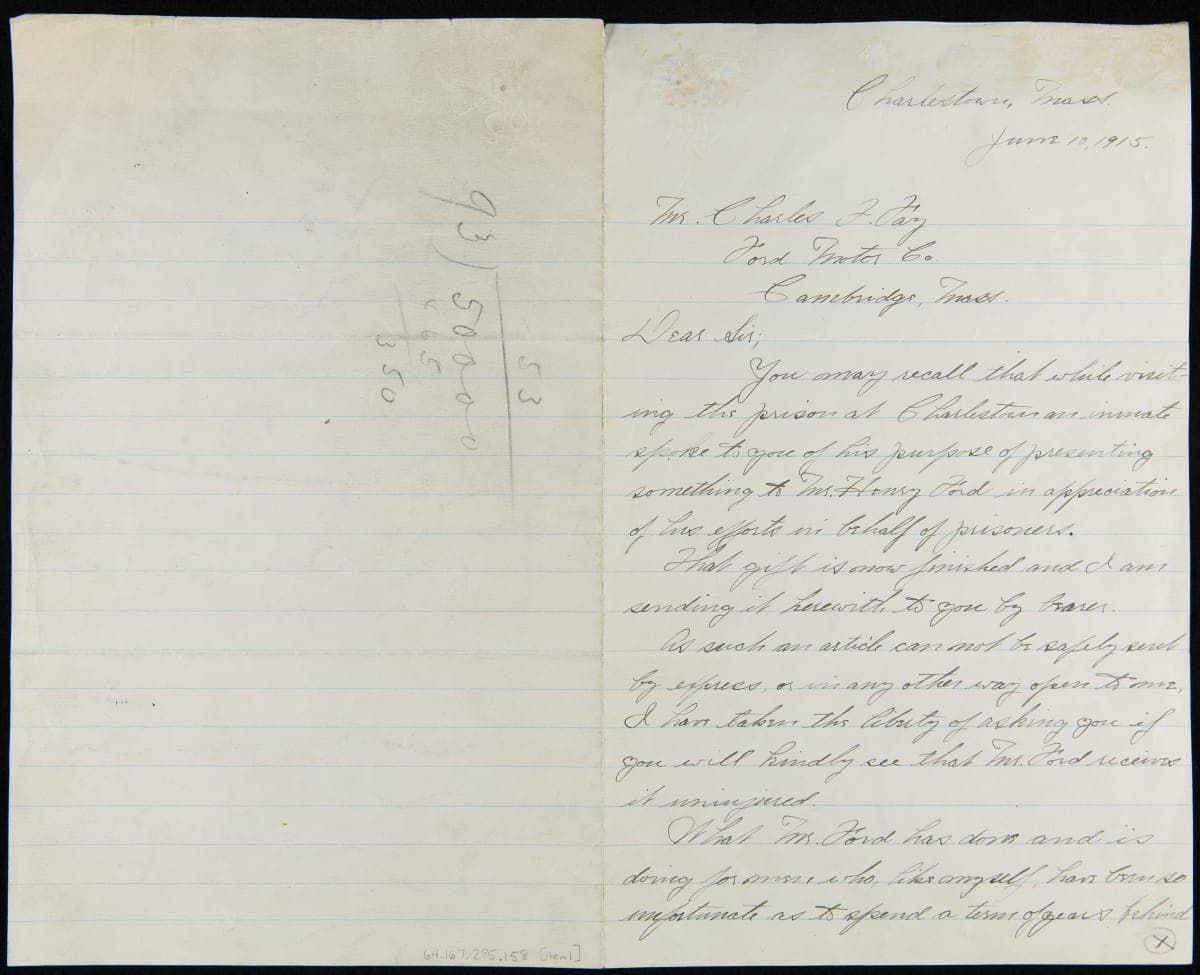 93)50000
53
465
350
64.167.285.158 [item 1]
Charlestown, Mass.
June 10, 1915.
Mr. Charles F. Fay
Ford Motor Co.
Cambridge, Mass.
Dear Sir;
You may recall that while visit-
ing the prison at Charlestown an inmate
spoke to you of his purpose of presenting
something to Mr. Henry Ford in appreciation
of his efforts in behalf of prisoners.
That gift is now finished and I am
sending it herewith to you by bearer.
As such an article can not be safely sent
by express, or in any other way open to me,
I have taken the liberty of asking you if
you will kindly see that Mr. Ford receives
it uninjured.
What Mr. Ford has done and is
doing for men who, like myself, have been so
unfortunate as to spend a term of years behind
X